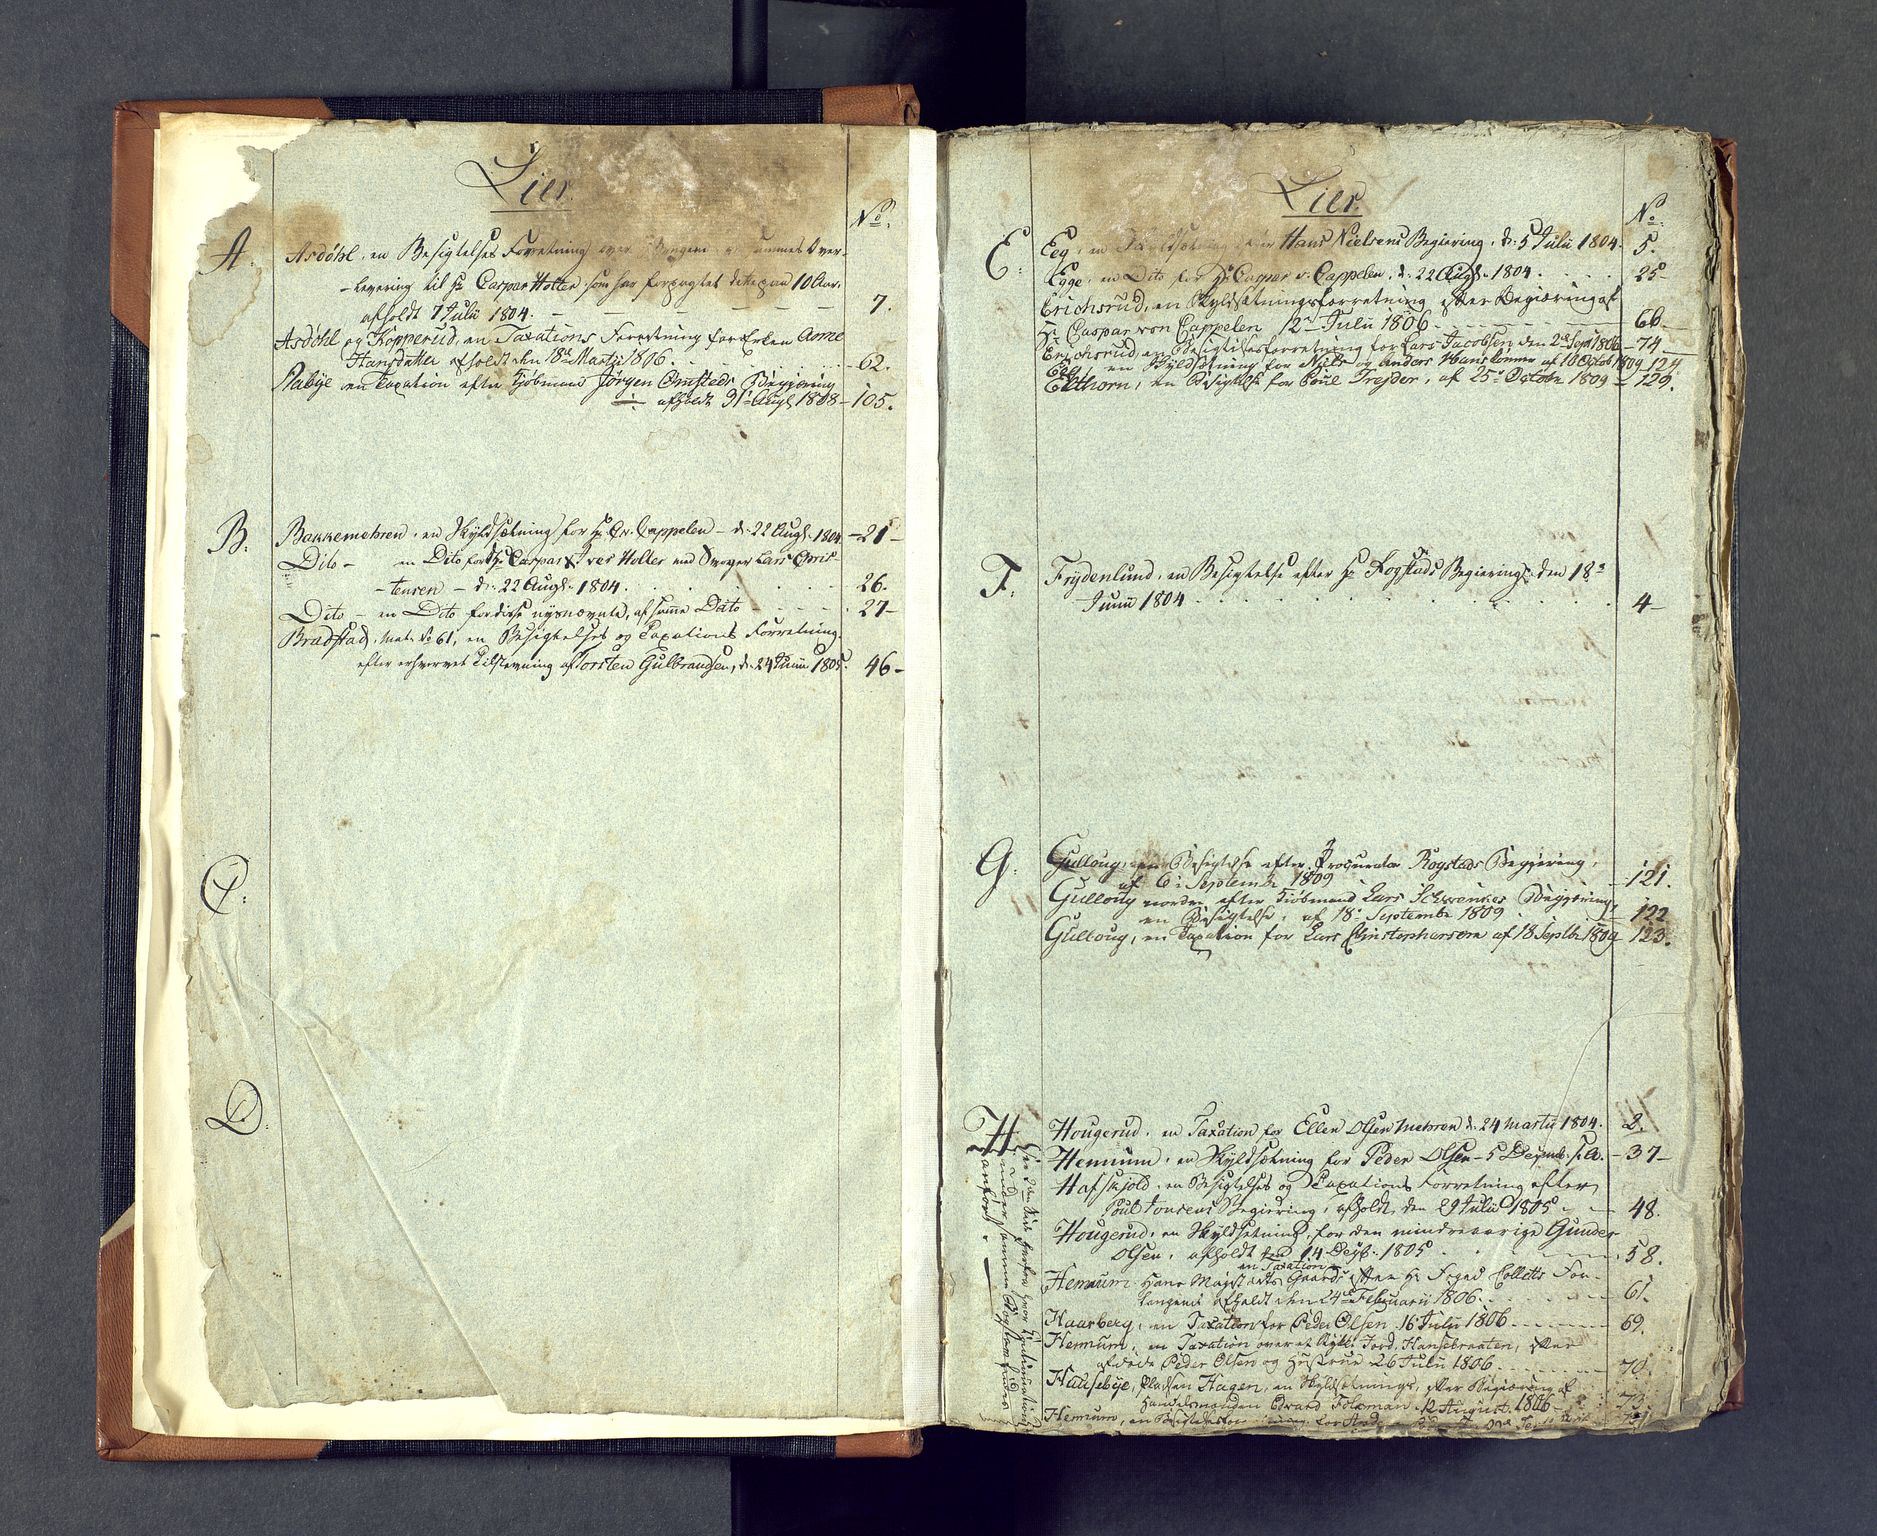 Lier.
No.
A. Asdøhl, en Besigtelses Forretning over
-levering til Hr Caspar Holter som har forpagtet dette paa 10 Aar,
afholdt 7 Julii 1804. 7.
Asdøhl og Kopperud, en Taxations Forretning for Enken Anne
Hansdatter afholdt den 18de Martii 1806. 62.
Aabye en Taxation efter Kiøbmand Jørgen Omsteds Begjæring
afholdt 31 Aug. 1808 - 105.
B. Bakkemehren, en Skyldsætning for Hr. C. v. Cappelen - d. 22 Aug. 1804 - 21 -
Dito - en Dito for Hr Caspar & Iver Holter med Svoger Lars Chris-
-tensen - d. 22 Aug. 1804. 26.
Dito - en Dito for disse nysnævnte, af samme Dato 27 -
Bradstad, Mat. No 61, en Besigtelses og Taxations Forretning
efter erhvervet Tilstevning af Torsten Gulbrandsen, d. 24 Junii 1805. 46 -
C.
D.
Lier.
No.
E. Eeg, en Skyldsætning efter Hans Nielsens Begiering, d. 5 Julii 1804. 5.
Egge, en Dito for Hr Caspar v. Cappelen, d. 22 Aug. 1804. 25
Erichsrud, en Skyldsætningsforretning efter Begiæring af
Hr. Caspar von Cappelen 12te Julii 1806 66
Erichsrud, en Besigtelsesforretning for Lars Jacobsen den 2de Sept 1806 - 74 -
Egg, en Skyldsætning for Niels og Anders Hans Sønner af 18 Octob 1809 124
Elthorn, en Besigtelse for Poul Treyder, af 25de Octobr 1809 - 129.
F. Frydenlund, en Besigtelse efter Hr Rogstads Begiering, den 18de
Junii 1804 4 -
G. Gulloug, en Besigtelse efter Procurator Rogstads Begjering,
af 6te Septembr 1809 121.
Gulloug nordre efter Kiøbmand Lars Schwenkes Begjæring,
en Besigtelse, af 18de Septembr 1809 122
Gulloug, en Taxation for Lars Christophersen af 18 Septbr 1809 123.
H. Hougerud, en Taxation for Ellen Olsen Mehren d. 24 Martii 1804. 2.
Hennum, en Skyldsætning for Peder Olsen - 5 Decemb. s. A. - 37 -
Hafskjold, en Besigtelses og Taxations Forretning efter
Poul Jonsens Begiering, afholdt den 29 Julii 1805 48.
Hougerud, en Skyldsetning, for den mindreaarige Gunder
Olsen, afholdt den 14 Decb. 1805 58.
en Taxation
Hennum Hans Majestæts Gaard efter Hr Foged Colletts For-
langende afholdt den 24de Februarii 1806. 61.
Haarberg, en Taxation for Peder Olsen 16 Julii 1806 69.
Hennum, en Taxation over et Stykke Jord, Hansebraaten, efter
afdøde Peder Olsen og Hustrue 26 Julii 1806 70.
Haugebye, Pladsen Hagen, en Skyldsætnings, efter Begiæring af
Handelsmanden Edvard Folkman 12 August 1806 - 73.
Hennum, en Besigtelse